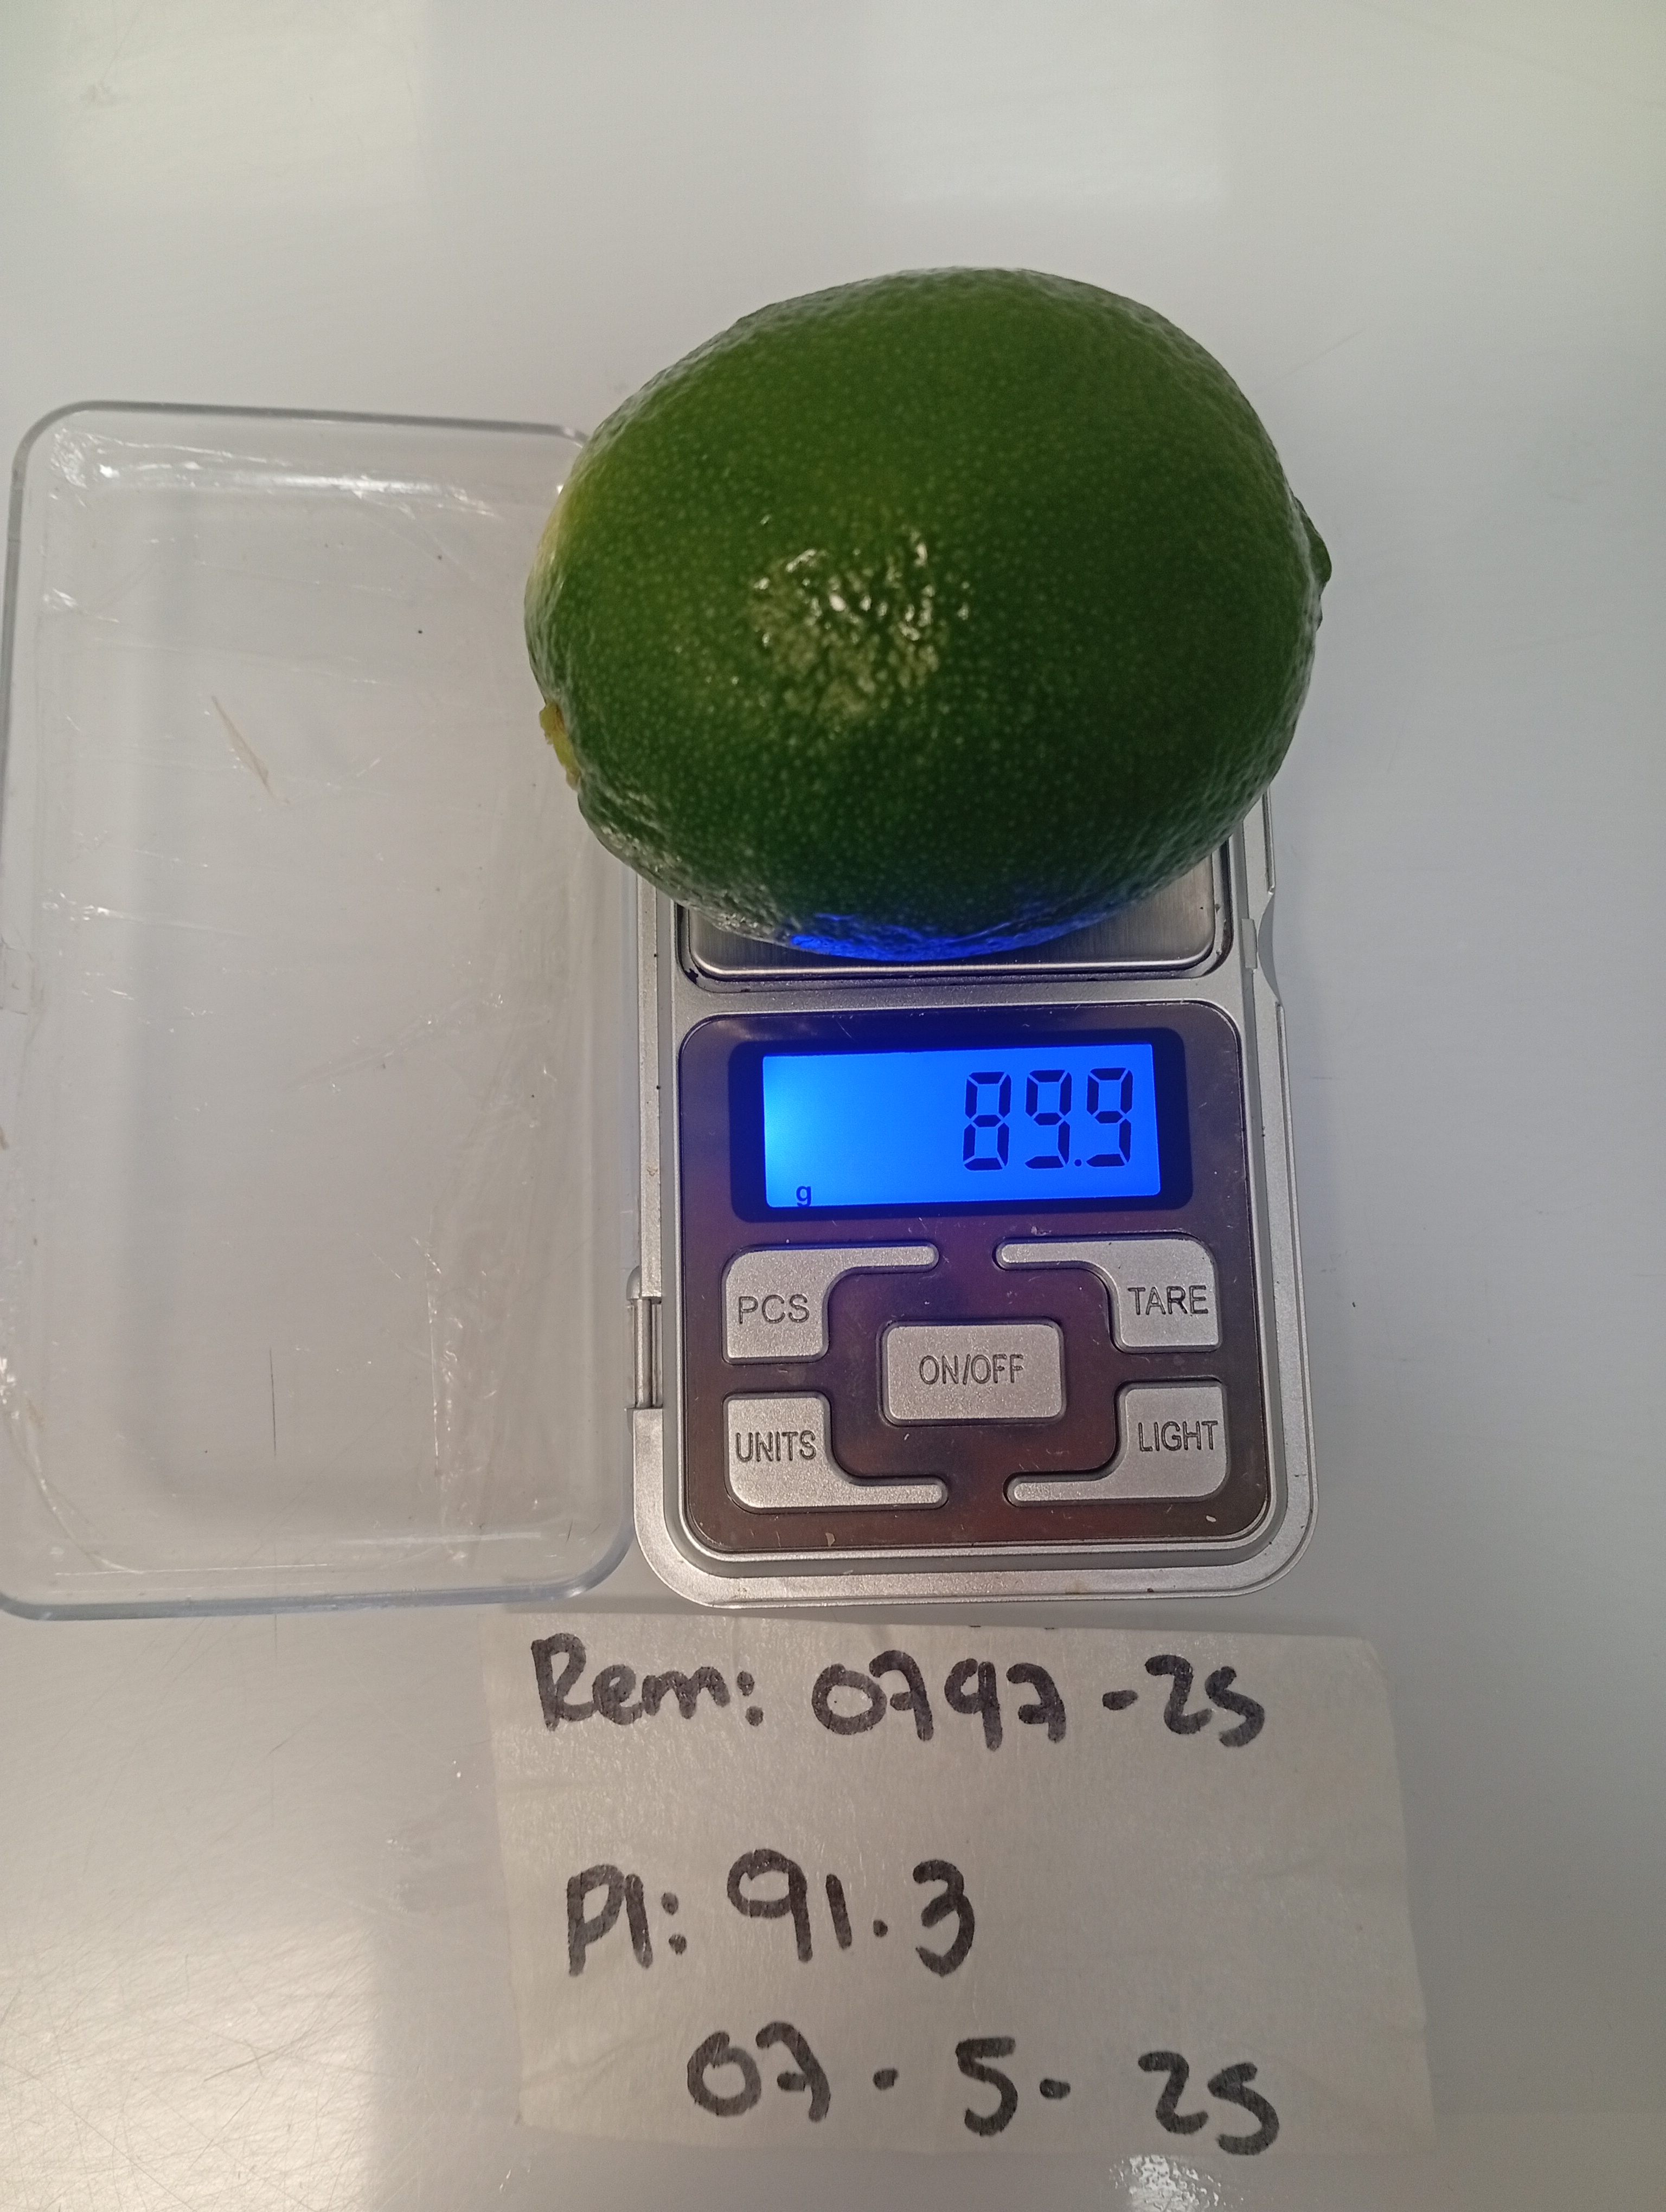 89.9
g
PCS
TARE
ON/OFF
UNITS
LIGHT
Rem: 0797-25
PI: 91.3
07-5-25